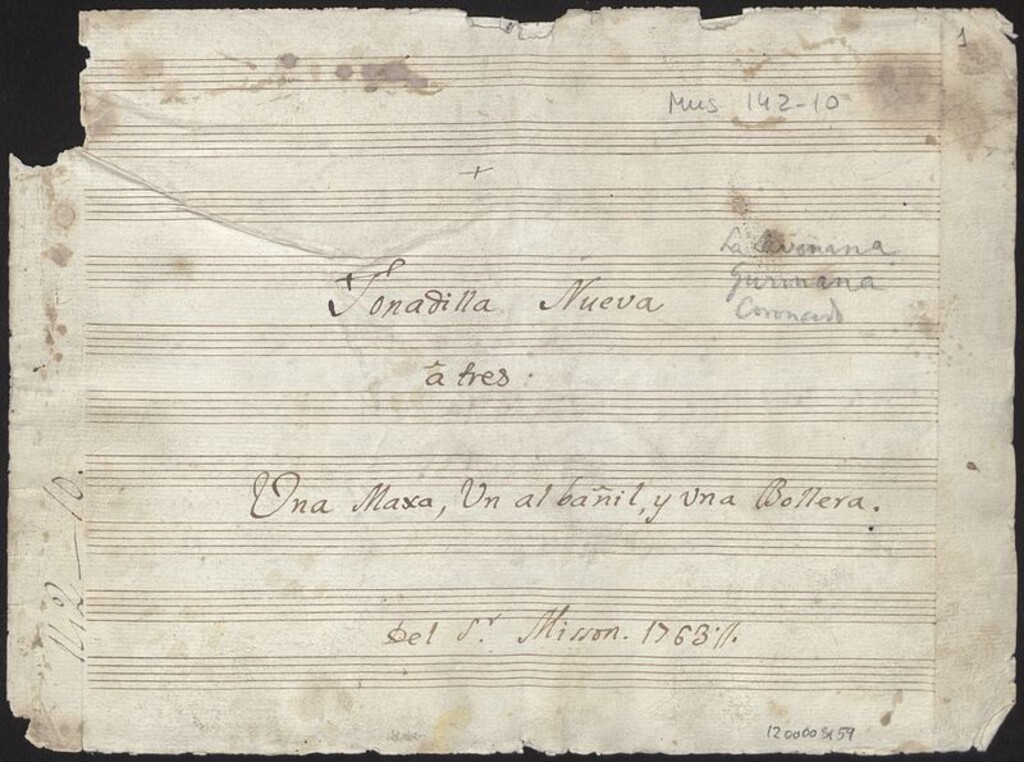 1
Mus 142-10
+
La
Guzmana
Coronado
Tonadilla Nueva
à tres.
Una Maxa, Un albañil, y Una Bollera.
Del Sr. Misson. 1763 //.
142-10.